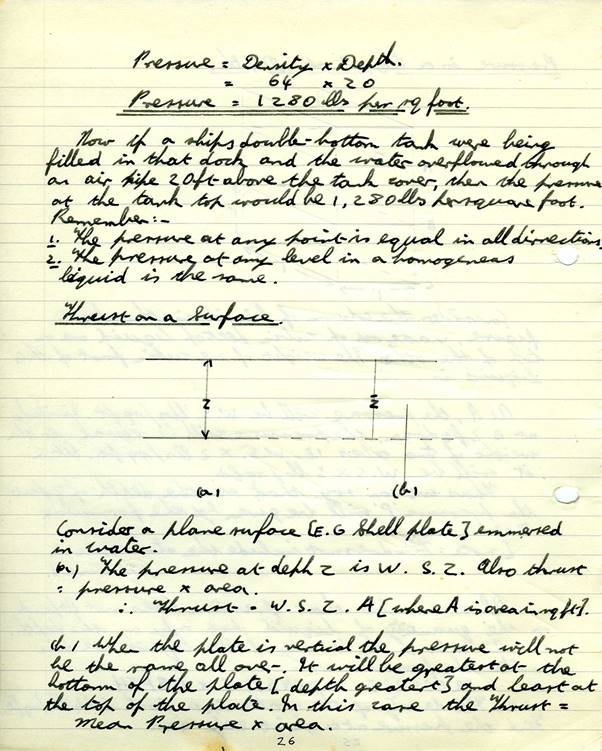 Pressure = Density x Depth.
= 64 x 20
Pressure = 1280 lbs per sq foot.
Now if a ships double-bottom tank were being
filled in that dock and the water overflowed through
an air pipe 20ft above the tank cover, then the pressure
at the tank top would be 1,280 lbs per square foot.
Remember:-
1. The pressure at any point is equal in all dirrections.
2. The pressure at any level in a homogeneas
liquid is the same.
Thrust on a Surface.
z z̄
(a) (b)
Consider a plane surface [E.G Shell plate] emmersed
in water.
(a) The pressure at deph z is W. S. Z. Also thrust
= pressure x area.
∴ Thrust = W. S. Z. A [where A is area in sq ft].
(b) When the plate is vertical the pressure will not
be the same all over. It will be greatest at the
bottom of the plate [depth greatest] and least at
the top of the plate. In this case the Thrust =
Mean Pressure x area.
26